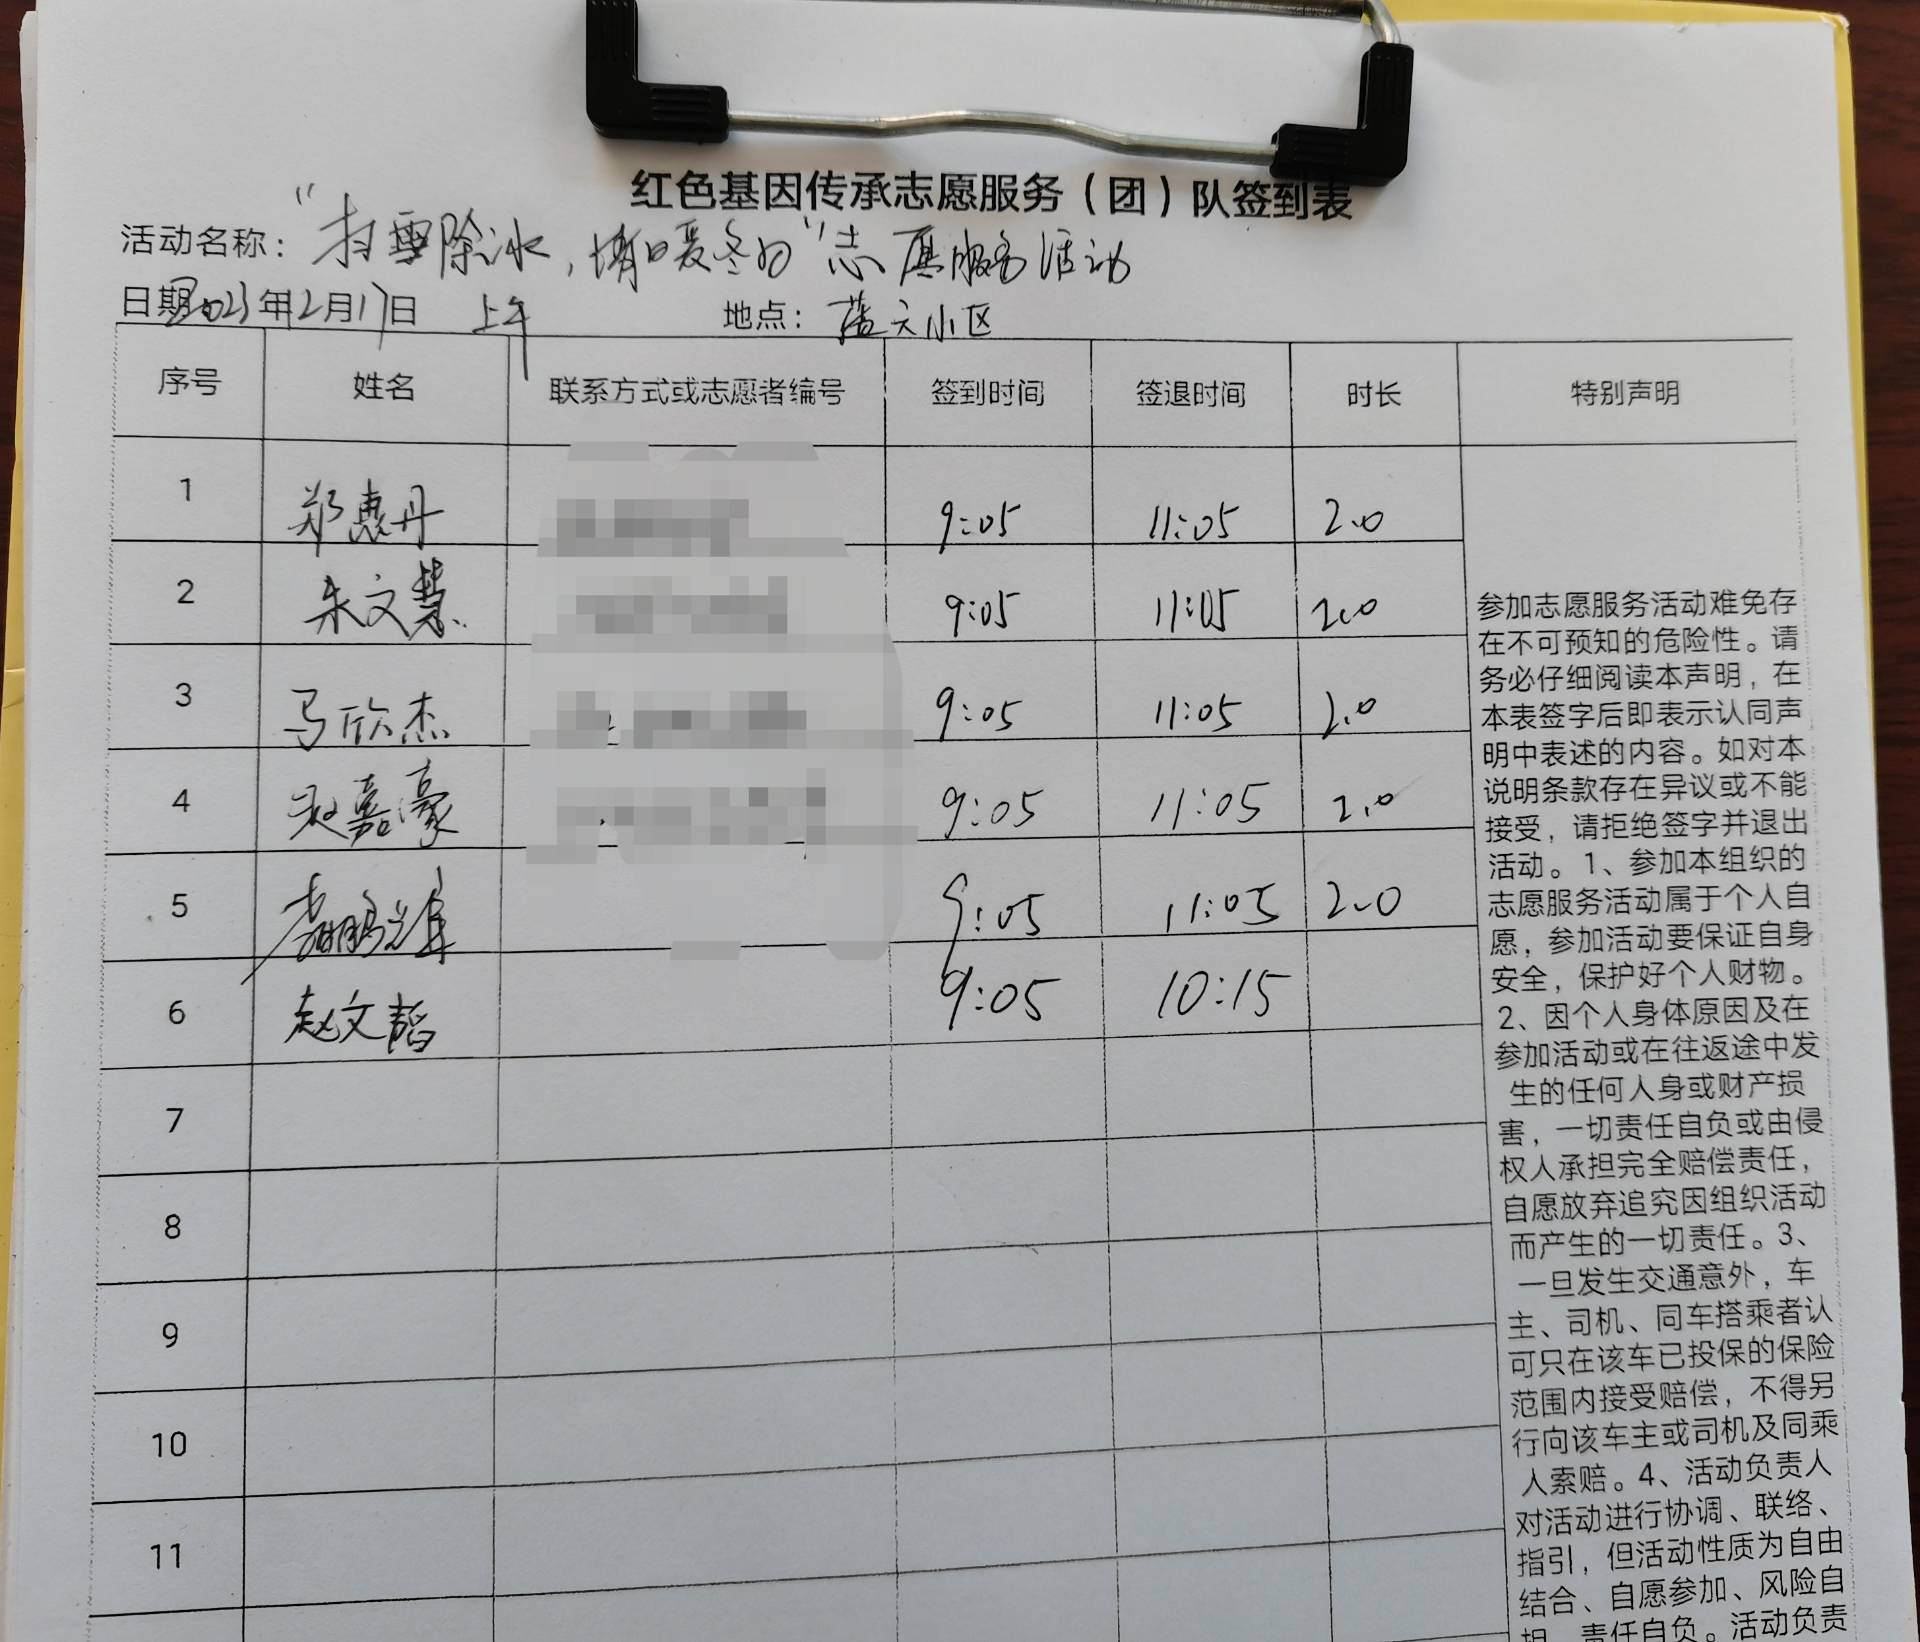 红色基因传承志愿服务（团）队签到表
活动名称：“扫雪除冰，情暖冬日”志愿服务活动
日期2023年12月17日 上午 地点：蓝天小区
序号 姓名 联系方式或志愿者编号 签到时间 签退时间 时长 特别声明
1 郑惠丹 9:05 11:05 2.0
2 朱文慧 9:05 11:05 2.0
3 马欣杰 9:05 11:05 2.0
4 嘉豪 9:05 11:05 2.0
5 9:05 11:05 2.0
6 赵文韬 9:05 10:15
7
8
9
10
11
参加志愿服务活动难免存
在不可预知的危险性。请
务必仔细阅读本声明，在
本表签字后即表示认同声
明中表述的内容。如对本
说明条款存在异议或不能
接受，请拒绝签字并退出
活动。1、参加本组织的
志愿服务活动属于个人自
愿，参加活动要保证自身
安全，保护好个人财物。
2、因个人身体原因及在
参加活动或在往返途中发
生的任何人身或财产损
害，一切责任自负或由侵
权人承担完全赔偿责任，
自愿放弃追究因组织活动
而产生的一切责任。3、
一旦发生交通意外，车
主、司机、同车搭乘者认
可只在该车已投保的保险
范围内接受赔偿，不得另
行向该车主或司机及同乘
人索赔。4、活动负责人
对活动进行协调、联络、
指引，但活动性质为自由
结合、自愿参加、风险自
担、责任自负。活动负责